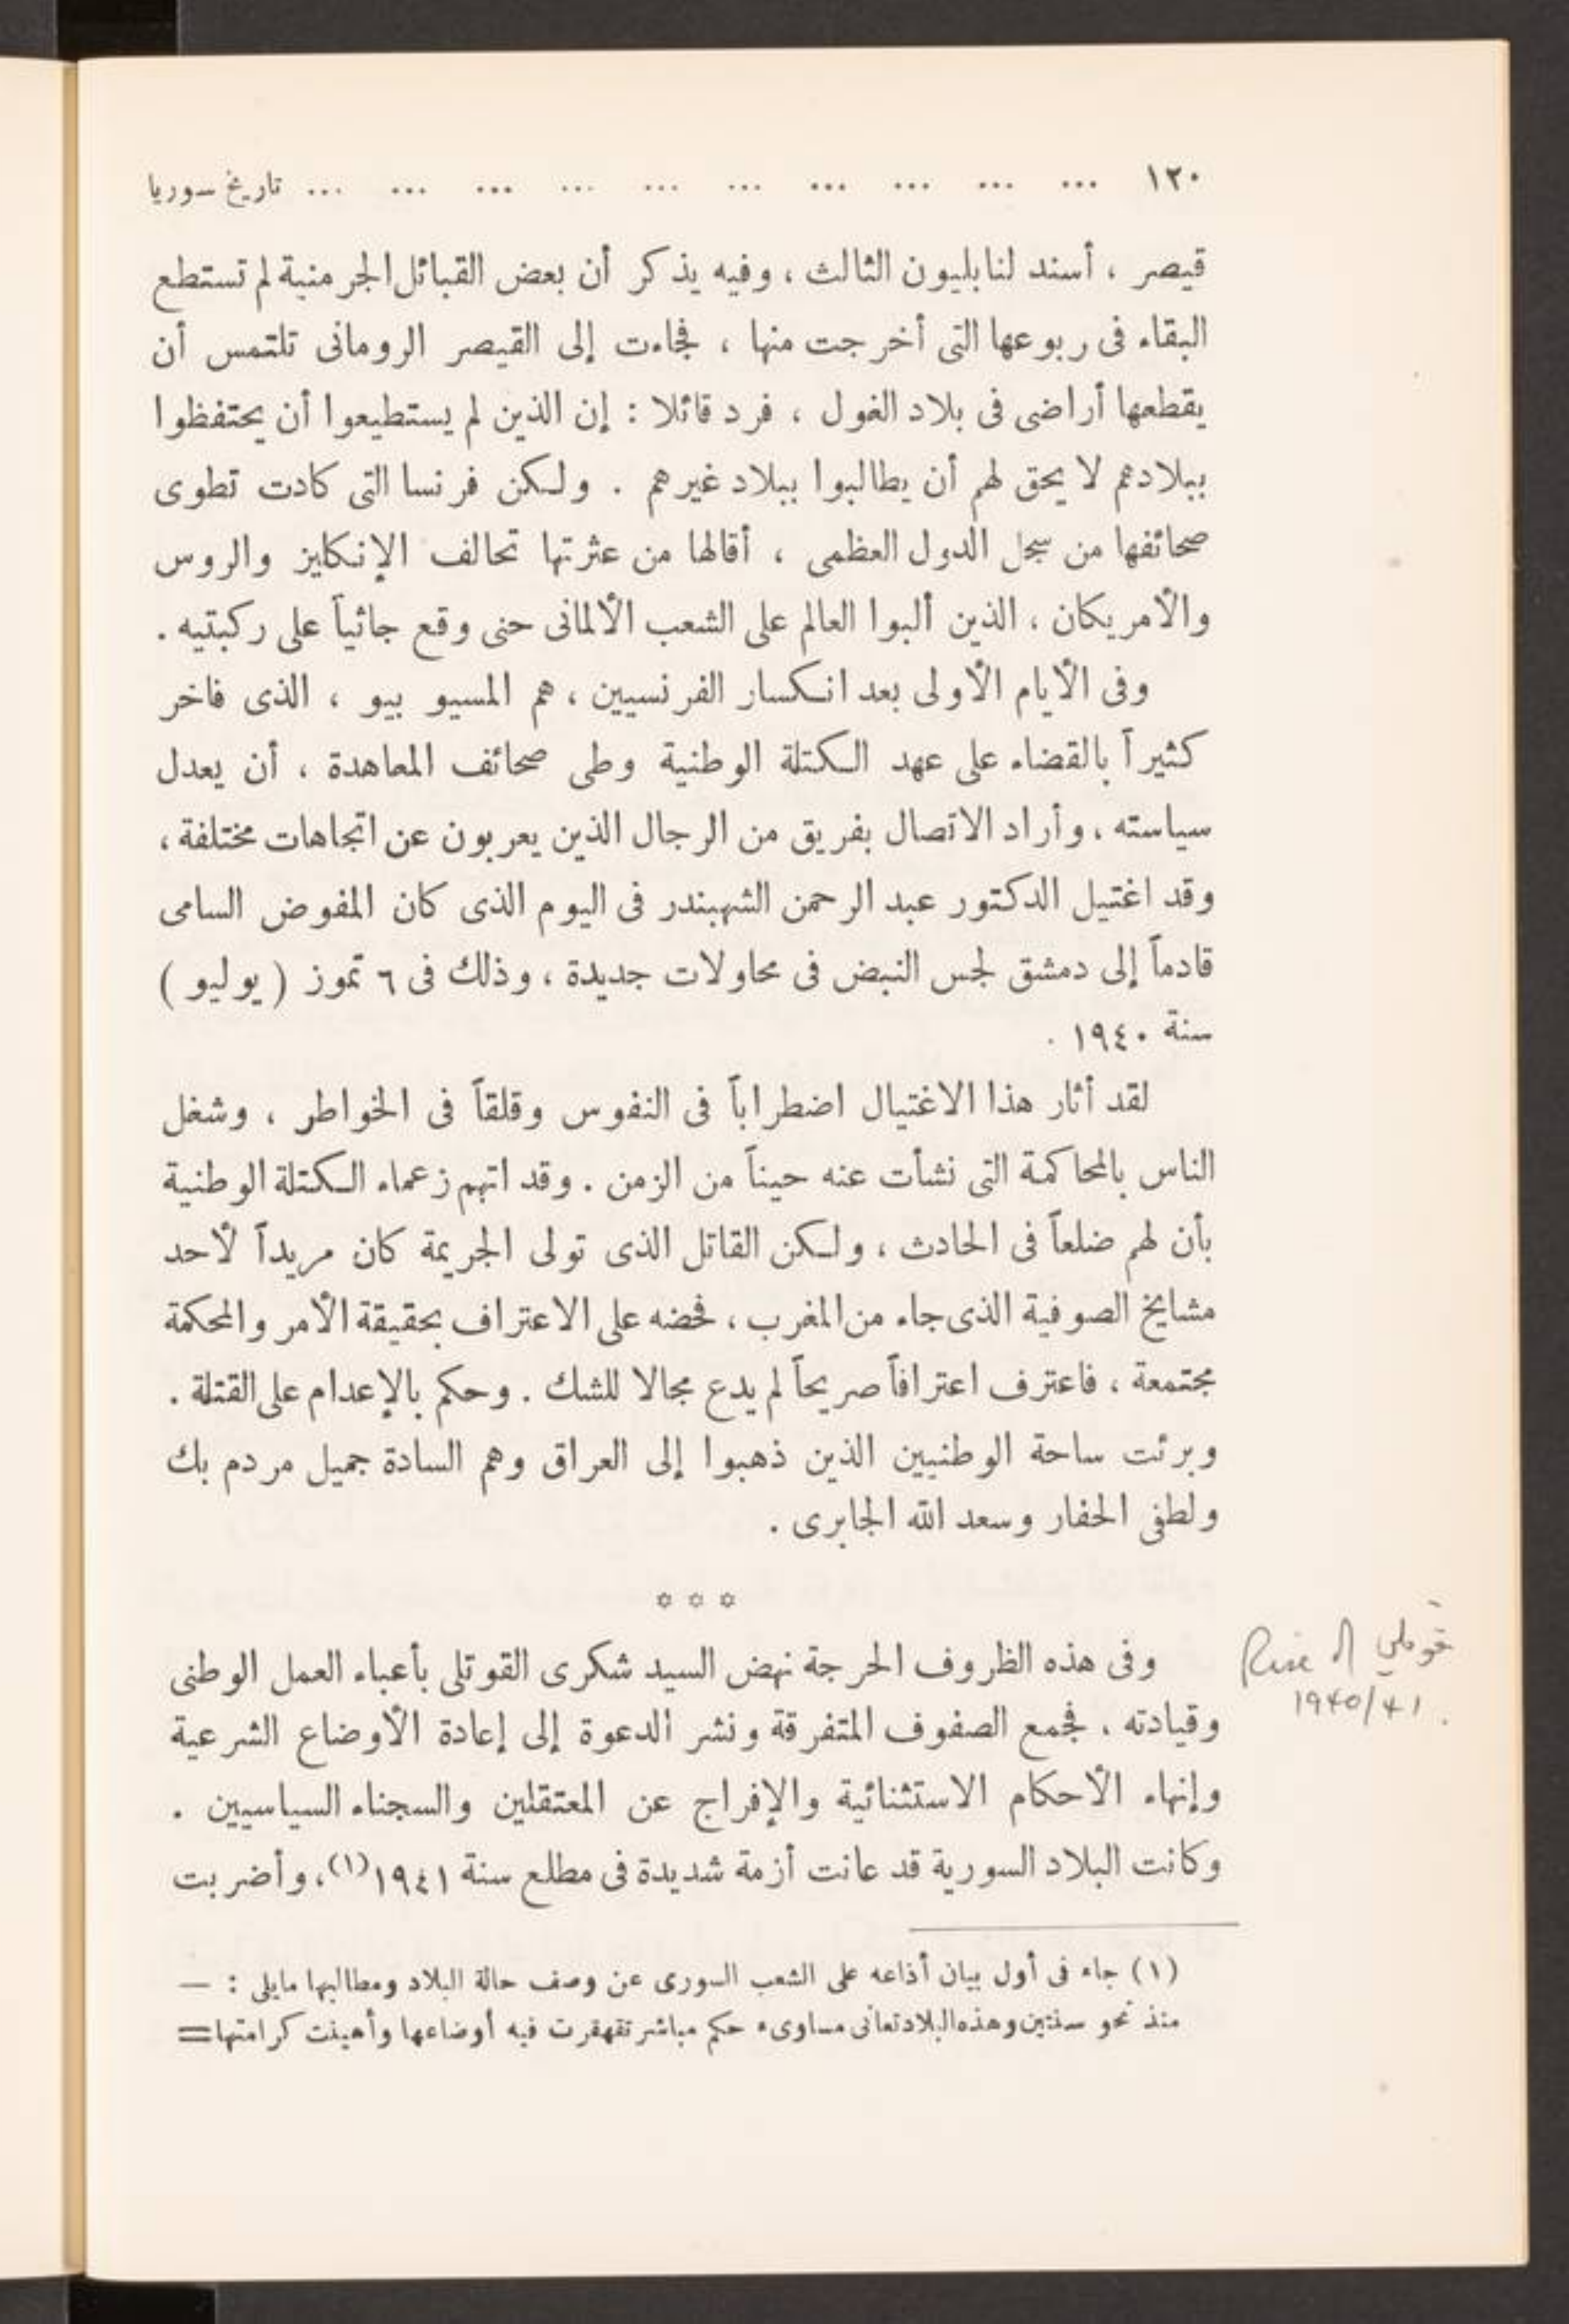 ١٢٠ ... ... ... ... ... ... ... ... ... ... تاريخ سوريا
قيصر ، أسند لنابليون الثالث ، وفيه يذكر أن بعض القبائل الجرمنية لم تستطع
البقاء فى ربوعها التى أخرجت منها ، فجاءت إلى القيصر الرومانى تلتمس أن
يقطعها أراضى فى بلاد الغول ، فرد قائلا : إن الذين لم يستطيعوا أن يحتفظوا
ببلادهم لا يحق لهم أن يطالبوا ببلاد غيرهم . ولكن فرنسا التى كادت تطوى
صحائفها من سجل الدول العظمى ، أقالها من عثرتها تحالف الإنكليز والروس
والأمريكان ، الذين ألبوا العالم على الشعب الألمانى حتى وقع جاثياً على ركبتيه .
وفى الأيام الأولى بعد انكسار الفرنسيين ، هم المسيو بيو ، الذى فاخر
كثيراً بالقضاء على عهد الكتلة الوطنية وطى صحائف المعاهدة ، أن يعدل
سياسته ، وأراد الاتصال بفريق من الرجال الذين يعربون عن اتجاهات مختلفة ،
وقد اغتيل الدكتور عبد الرحمن الشهبندر فى اليوم الذى كان المفوض السامى
قادماً إلى دمشق لجس النبض فى محاولات جديدة ، وذلك فى ٦ تموز ( يوليو )
سنة ١٩٤٠ .
لقد أثار هذا الاغتيال اضطراباً فى النفوس وقلقاً فى الخواطر ، وشغل
الناس بالمحاكمة التى نشأت عنه حيناً من الزمن . وقد اتهم زعماء الكتلة الوطنية
بأن لهم ضلعاً فى الحادث ، ولكن القاتل الذى تولى الجريمة كان مريداً لأحد
مشايخ الصوفية الذى جاء من المغرب ، فحضه على الاعتراف بحقيقة الأمر والمحكمة
مجتمعة ، فاعترف اعترافاً صريحاً لم يدع مجالا للشك . وحكم بالإعدام على القتلة .
وبرئت ساحة الوطنيين الذين ذهبوا إلى العراق وهم السادة جميل مردم بك
ولطفى الحفار وسعد الله الجابرى .
* * *
وفى هذه الظروف الحرجة نهض السيد شكرى القوتلى بأعباء العمل الوطنى
وقيادته ، فجمع الصفوف المتفرقة ونشر الدعوة إلى إعادة الأوضاع الشرعية
وإنهاء الأحكام الاستثنائية والإفراج عن المعتقلين والسجناء السياسيين .
وكانت البلاد السورية قد عانت أزمة شديدة فى مطلع سنة ١٩٤١ (١) ، وأضربت
Rise of قوتلي
1940/41.
(١) جاء فى أول بيان أذاعه على الشعب السورى عن وصف حالة البلاد ومطالبها مايلى : —
منذ نحو سنتين وهذه البلاد تعانى مساوىء حكم مباشر تقهقرت فيه أوضاعها وأهينت كرامتها =